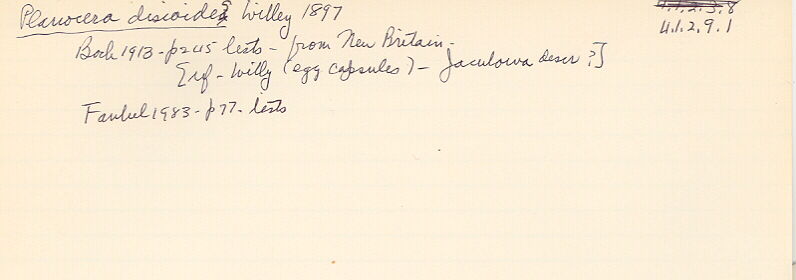 Planocera discoides Willey 1897
4.1.2.3.8
4.1.2.9.1
Bock 1913 - p245 lists - from New Britain -
[ref - Willy (egg capsules) - Jacubowa descr ?]
Faubel 1983 - p77 - lists